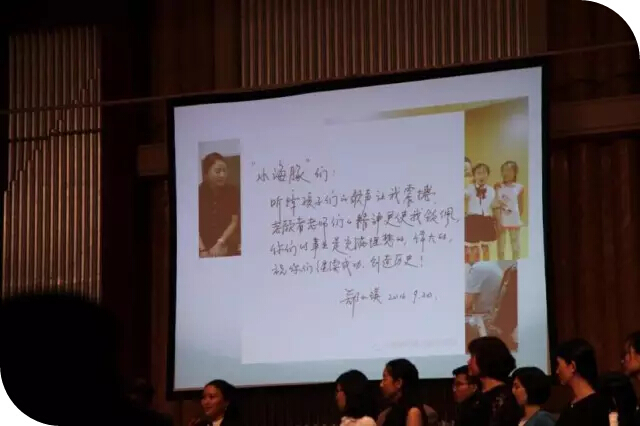 “小海豚”们：
听惯孩子们的歌声让我震撼，
奉献者老师们的精神更使我钦佩，
你们的事业是充满理想的，伟大的，
祝你们继续成功，创造历史！
郑小瑛 2016.9.20.